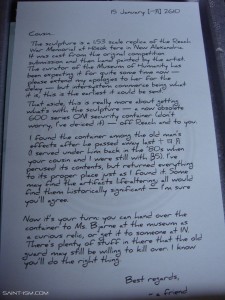 15 January [-8] 2610
Cousin,
The sculpture is a 1:53 scale replica of the Reach
War Memorial at Hökök tere in New Alexandria.
It was cast from the original competition
submission and then hand painted by the artist.
The curator of the Museum of Humanity has
been expecting it for quite some time now —
please extend my apologies to her for the
delay — but interstellar commerce being what
it is, this is the earliest it could be sent
That aside, this is really more about getting
what's with the sculpture — a now obsolete
600 series ONI security container (don't
worry, I've cleared it) — off Reach and to you.
I found the container among the old man's
effects after he passed away last
(I served under him back in the '80s when
your cousin and I were still with β5). I've
perused its contents, but returned everything
to its proper place just as I found it. Some
may find the artifacts lifealtering, all would
find them historically significant. I'm sure
you'll agree.
Now it's your turn: you can hand over the
container to Ms. Byrne at the museum as
a curious relic, or get it to someone at IV.
There's plenty of stuff in there that the old
guard may still be willing to kill over. I know
you'll do the right thing.
Best regards,
a friend